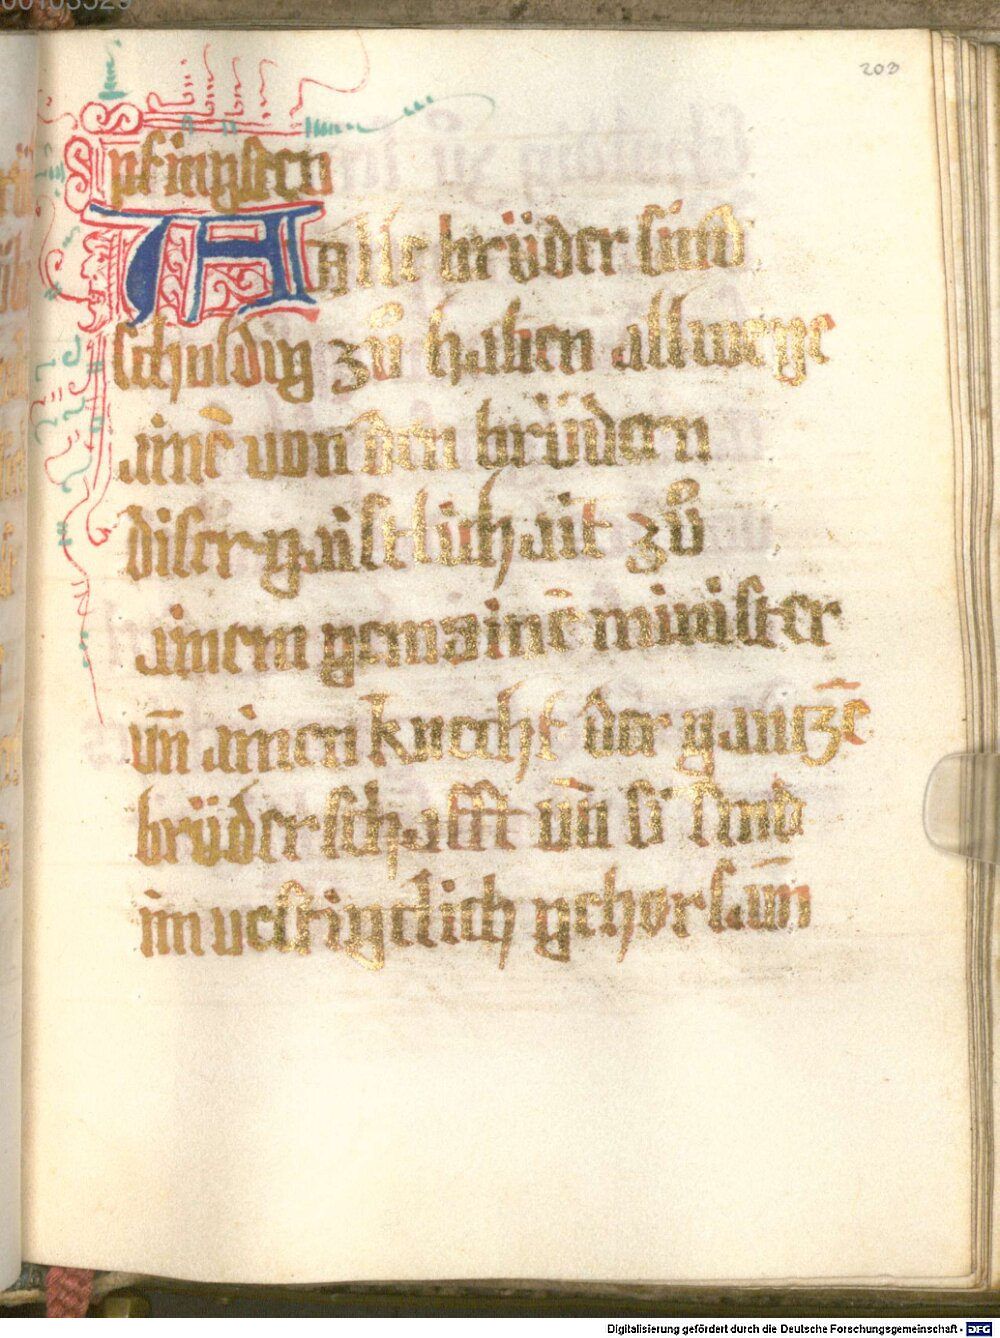 203
pfingsten
Alle brüder sind
schuldig zuͦ haben allwege
ainē von den brüdern
diser gaistlichait zuͦ
ainem gemainē minister
uñ ainen knecht der gantzē
brüderschafft uñ si sind
im vestigclich gehorsam̄
Digitalisierung gefördert durch die Deutsche Forschungsgemeinschaft - DFG